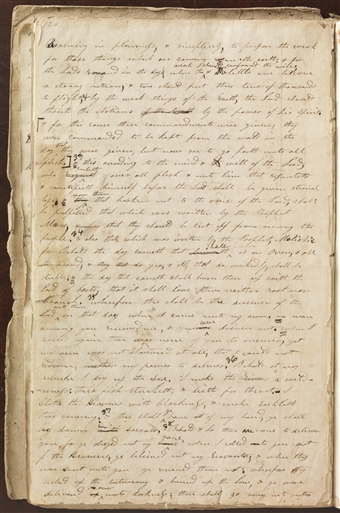 Reasoning in plainness, & simplicity to prepare the weak
for those things which are coming on the earth, & for
the Lords errand in the day when the weak shall confound the wise
& the little one become
a strong nation, & two shall put their tens of thousand
to flight, & by the weak things of the Earth, the Lord should
thrash the Nations by the power of his spirit
for this cause these commandments were given, they
were commanded to be kept from the world in the
day they were given, but now are to go forth unto all
flesh, & this according to the mind & will of the Lord,
who ruleth over all flesh & unto him that repenteth
& sanctifieth himself before the Lord shall be given eternal
life & upon them that hearken not to the voice of the Lord, shall
be fulfilled that which was written by the Prophet
Moses that they should be cut off from among the
people. & also that which was written by the Prophet Malachi
for Behold the day cometh that shall burn as an oven, & all
the proud, & all that do wickedly shall be
stubble, & the day that cometh shall burn them up saith the
Lord of hosts, that it shall leave them neither root nor
branch. wherefore this shall be the answer of the
Lord, in that day when I came unto my own, no man
among you received me, & you were driven out. when I
called again there was none of you to answer, yet
my arm was not shortened at all, that I could not
redeem, neither my power to deliver. Behold at my
rebuke I dry up the Sea. I make the rivers a wil-
derness their fish stinketh, & dieth for thirst. I
Clothe the Heavens with blackness, & make sackcloth
their covering. & this shall ye have of my hand, ye shall
lay down in sorrow. Behold & lo there are none to deliver
you, for ye obeyed not my voice when I called to you out
of the Heavens, ye believed not my Servants, & when they
were sent unto you ye received them not; wherefore they
sealed up the testimony & bound up the law, & ye were
delivered over unto darkness; these shall go away into outer